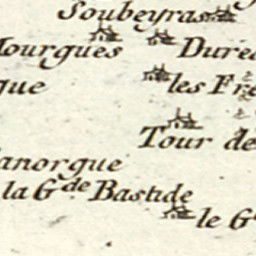 Soubeyras
Mourgues Dure
que les Fre
Tour de
anorgue
la G.de Bastide
le G